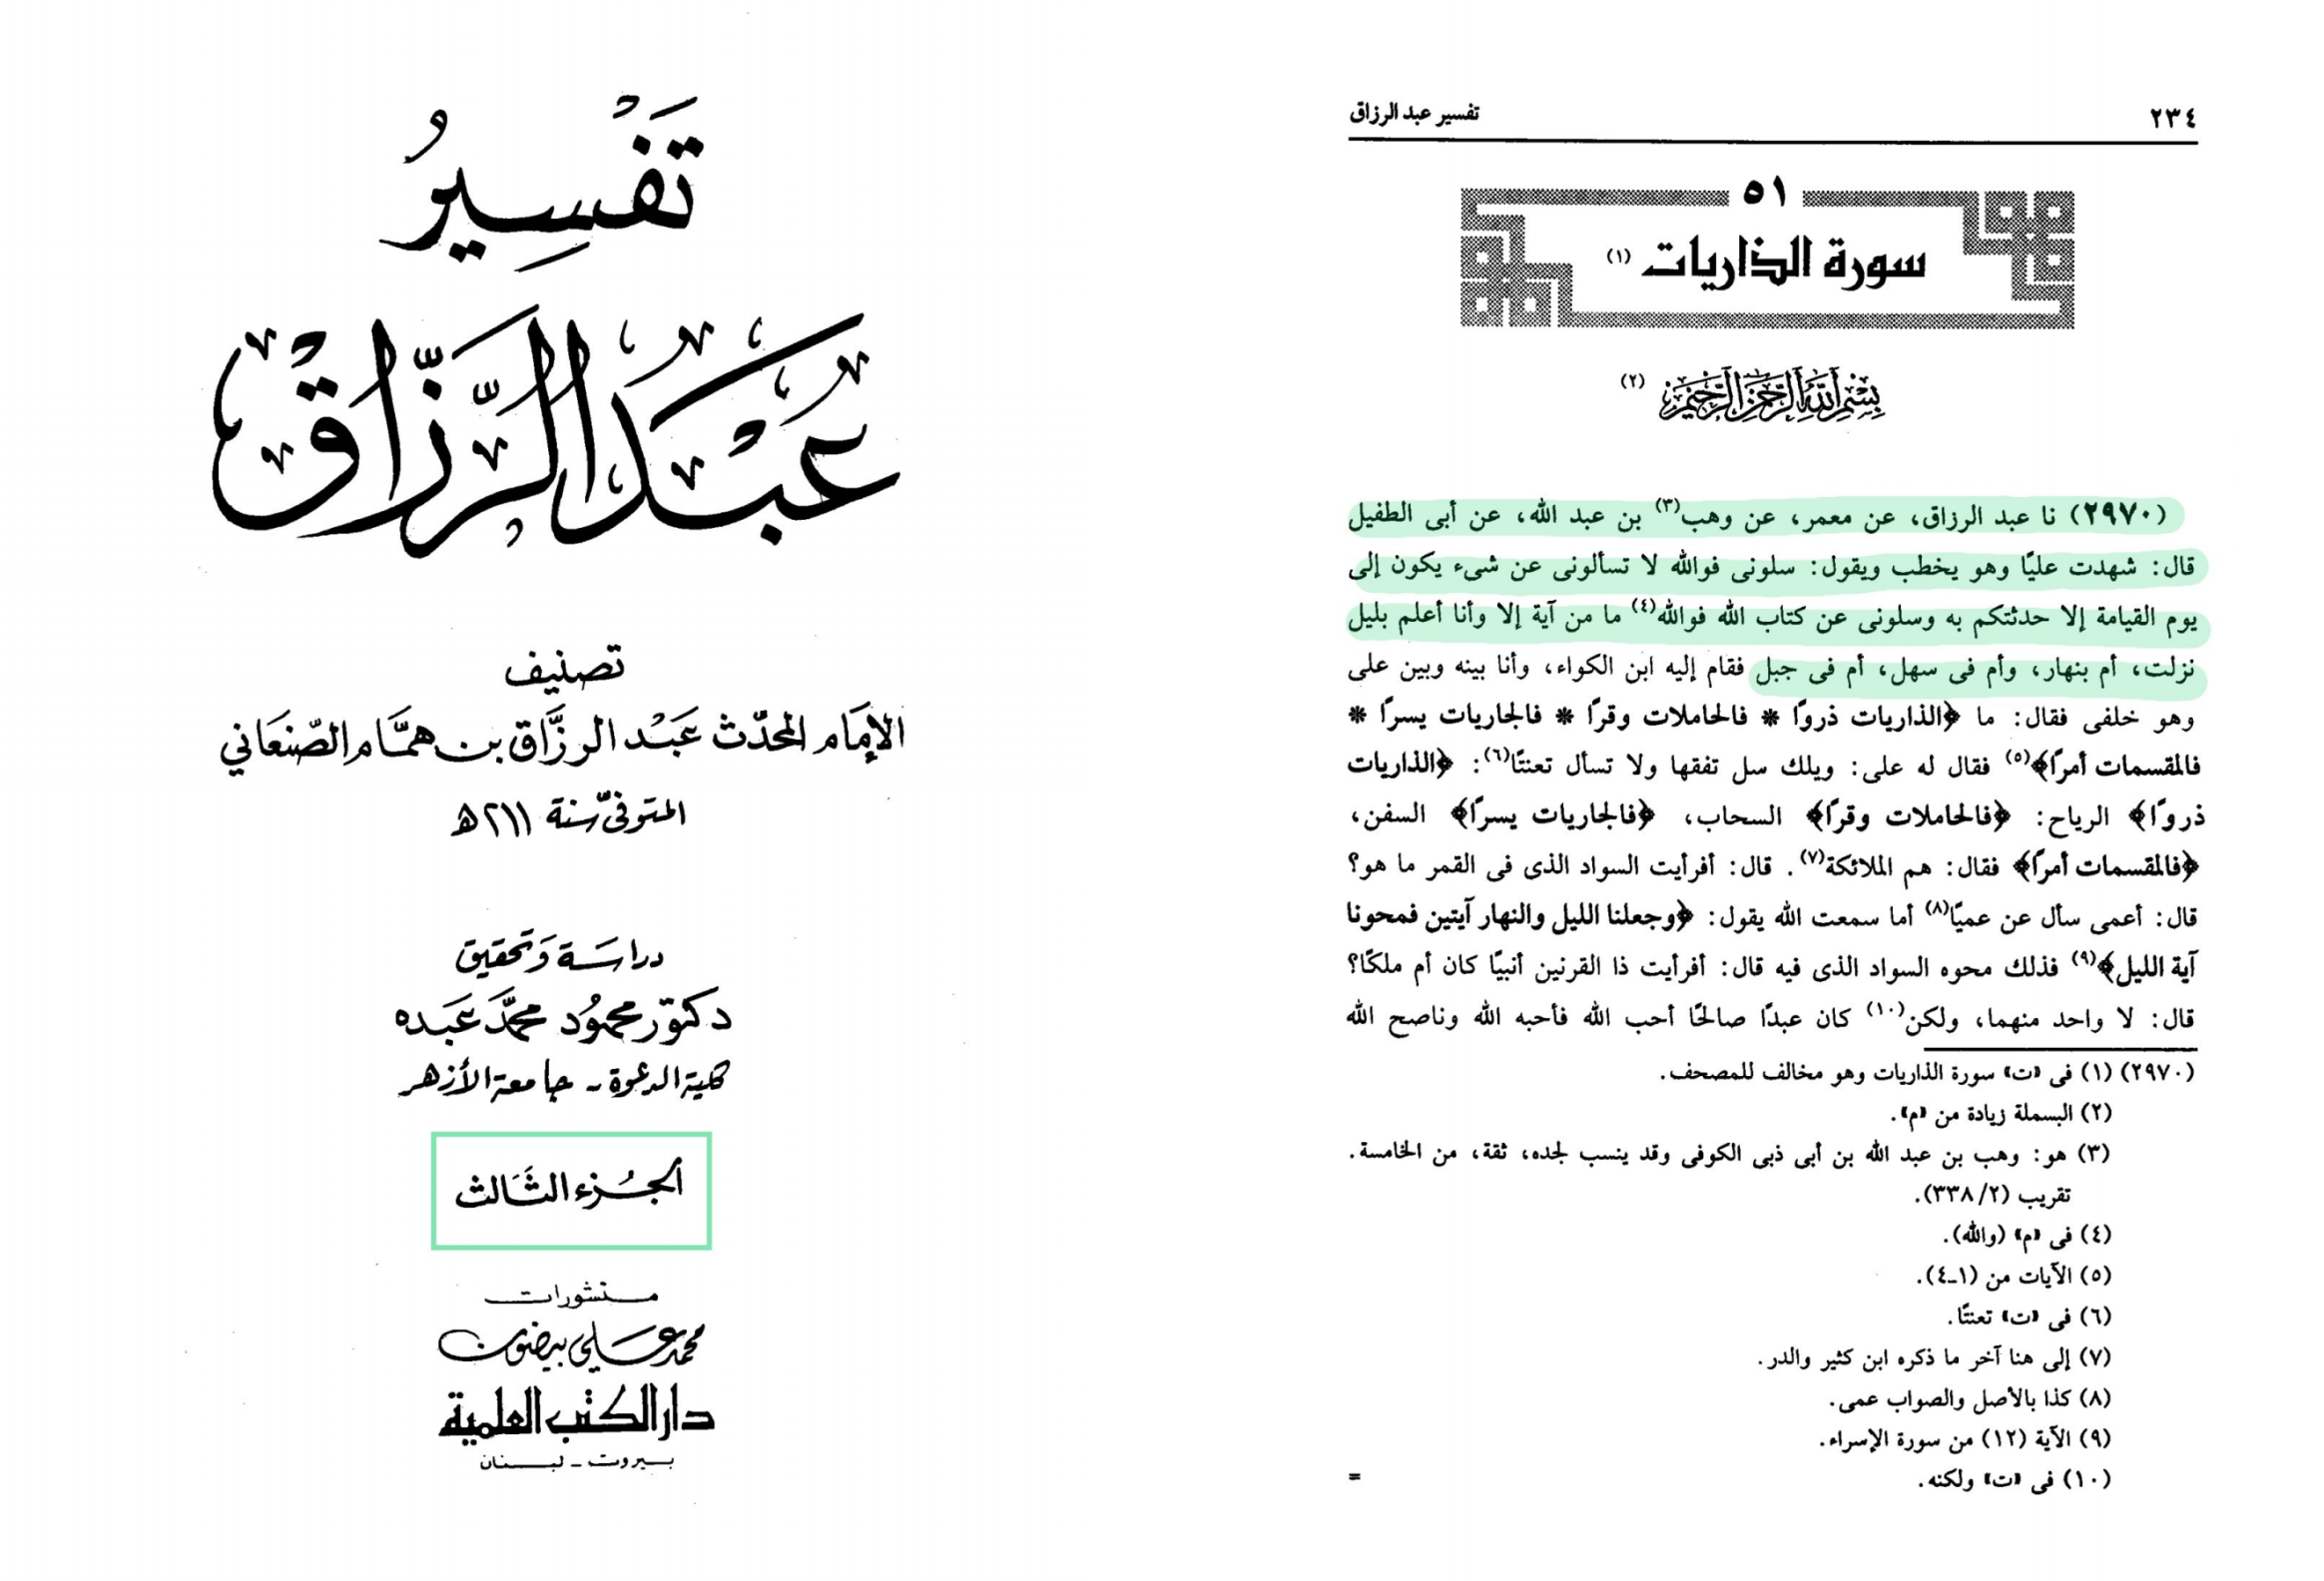 تَفْسِيرُ
عَبْدُ الرَّزَّاقْ
تصنيف
الإمَام المحدّث عَبْد الرزَّاق بن همَّام الصّنعَاني
المتوفّى سنة ٢١١ه
دراسَة وَتحقيق
دكتور محمُود محمَّد عَبده
كلية الدعوة - جامعة الأزهر
الجُزء الثَالث
منشورات
محمد عَلي بيضون
دار الكتب العلمية
بيروت - لبنان
٢٣٤ تفسير عبد الرزاق
٥١
سورة الذاريات (١)
بسم الله الرحمن الرحيم (٢)
(٢٩٧٠) نا عبد الرزاق، عن معمر، عن وهب(٣) بن عبد الله، عن أبى الطفيل
قال: شهدت عليًا وهو يخطب ويقول: سلونى فوالله لا تسألونى عن شىء يكون إلى
يوم القيامة إلا حدثتكم به وسلونى عن كتاب الله فوالله(٤) ما من آية إلا وأنا أعلم بليل
نزلت، أم بنهار، وأم فى سهل، أم فى جبل فقام إليه ابن الكواء، وأنا بينه وبين على
وهو خلفى فقال: ما ﴿الذاريات ذروًا * فالحاملات وقرًا * فالجاريات يسرًا *
فالمقسمات أمرًا﴾(٥) فقال له على: ويلك سل تفقها ولا تسأل تعنتًا(٦): ﴿الذاريات
ذروًا﴾ الرياح: ﴿فالحاملات وقرًا﴾ السحاب، ﴿فالجاريات يسرًا﴾ السفن،
﴿فالمقسمات أمرًا﴾ فقال: هم الملائكة(٧). قال: أفرأيت السواد الذى فى القمر ما هو؟
قال: أعمى سأل عن عميًا(٨) أما سمعت الله يقول: ﴿وجعلنا الليل والنهار آيتين فمحونا
آية الليل﴾(٩) فذلك محوه السواد الذى فيه قال: أفرأيت ذا القرنين أنبيًا كان أم ملكًا؟
قال: لا واحد منهما، ولكن(١٠) كان عبدًا صالحًا أحب الله فأحبه الله وناصح الله
(٢٩٧٠) (١) فى «ت» سورة الذاريات وهو مخالف للمصحف.
(٢) البسملة زيادة من «م».
(٣) هو: وهب بن عبد الله بن أبى ذبى الكوفى وقد ينسب لجده، ثقة، من الخامسة.
تقريب (٣٣٨/٢).
(٤) فى «م» (والله).
(٥) الآيات من (١-٤).
(٦) فى «ت» تعنتًا.
(٧) إلى هنا آخر ما ذكره ابن كثير والدر.
(٨) كذا بالأصل والصواب عمى.
(٩) الآية (١٢) من سورة الإسراء.
(١٠) فى «ت» ولكنه. =